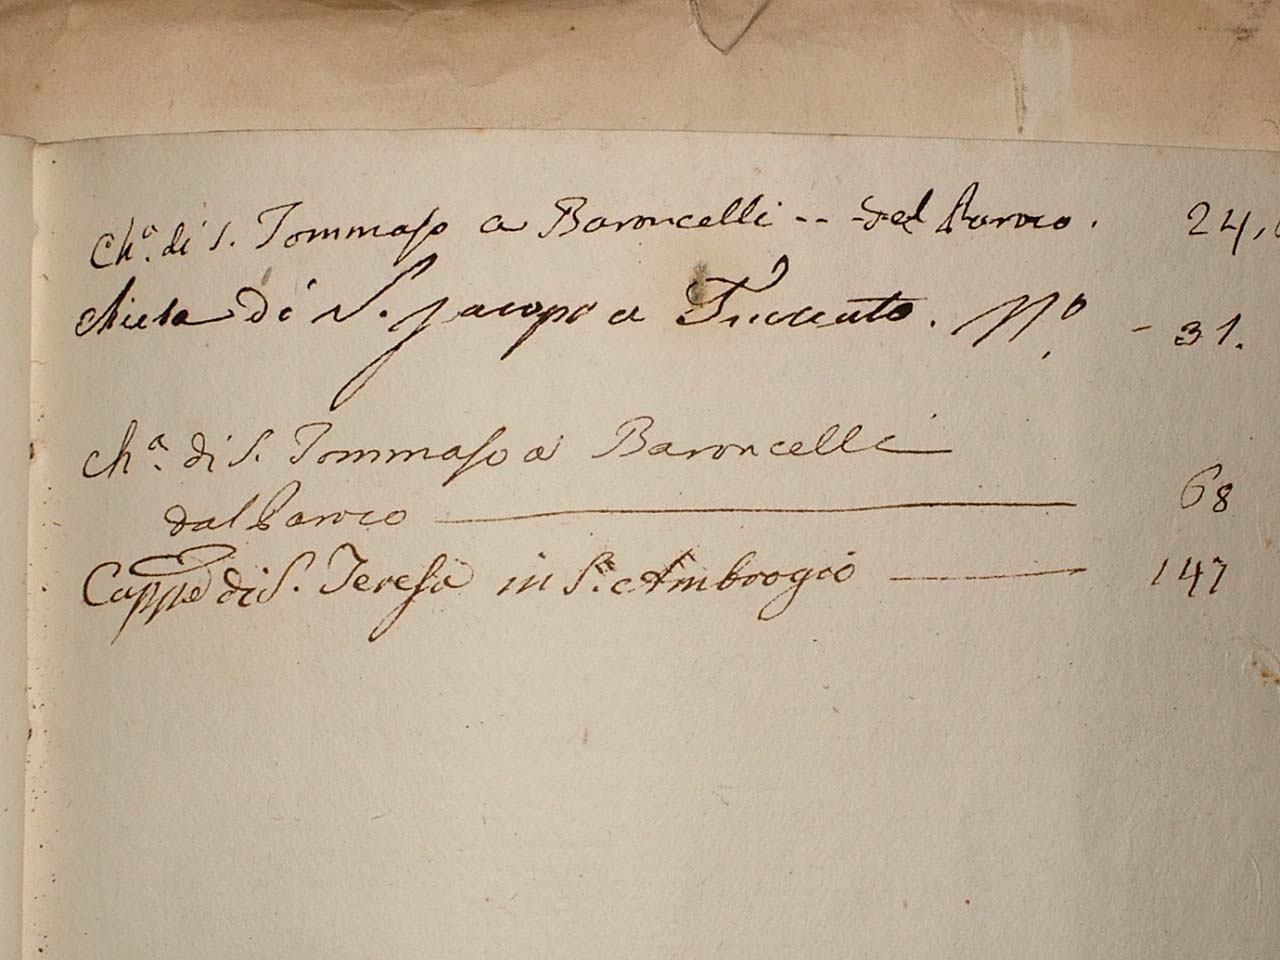 Ch.ª di S. Tommaso a Baroncelli -- del Paroco. 24,
Chiesa di S. Jacopo a N.º - 31.
Ch.ª di S. Tommaso a Baroncelli
dal Paroco 68
Capp.ª di S. Teresa in S. Ambrogio 147